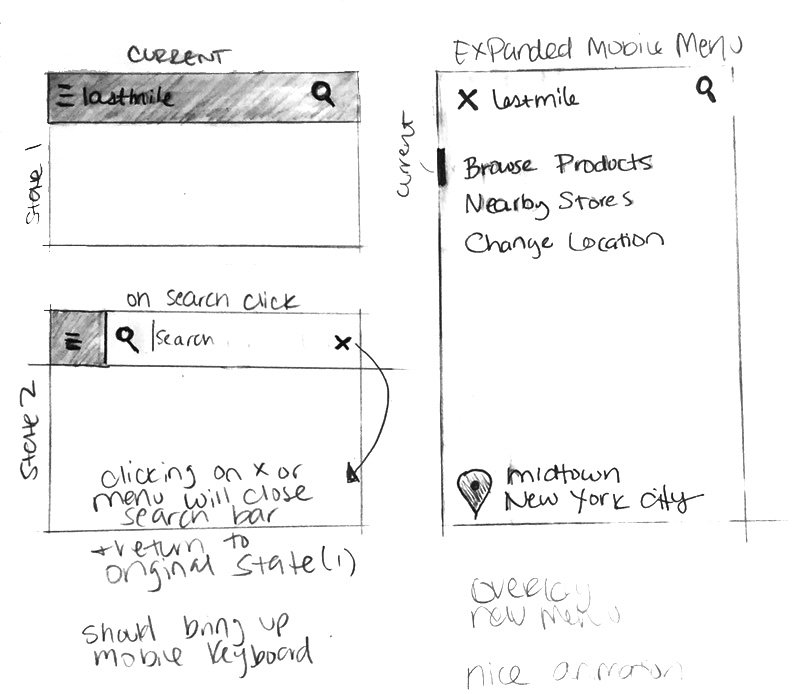 CURRENT
lastmile
State 1
on search click
Search
State 2
clicking on x or
menu will close
search bar
+ return to
original state (1)
should bring up
mobile keyboard
Expanded Mobile Menu
lastmile
current
Browse Products
Nearby Stores
Change Location
midtown
New York City
overlay
new menu
nice animation